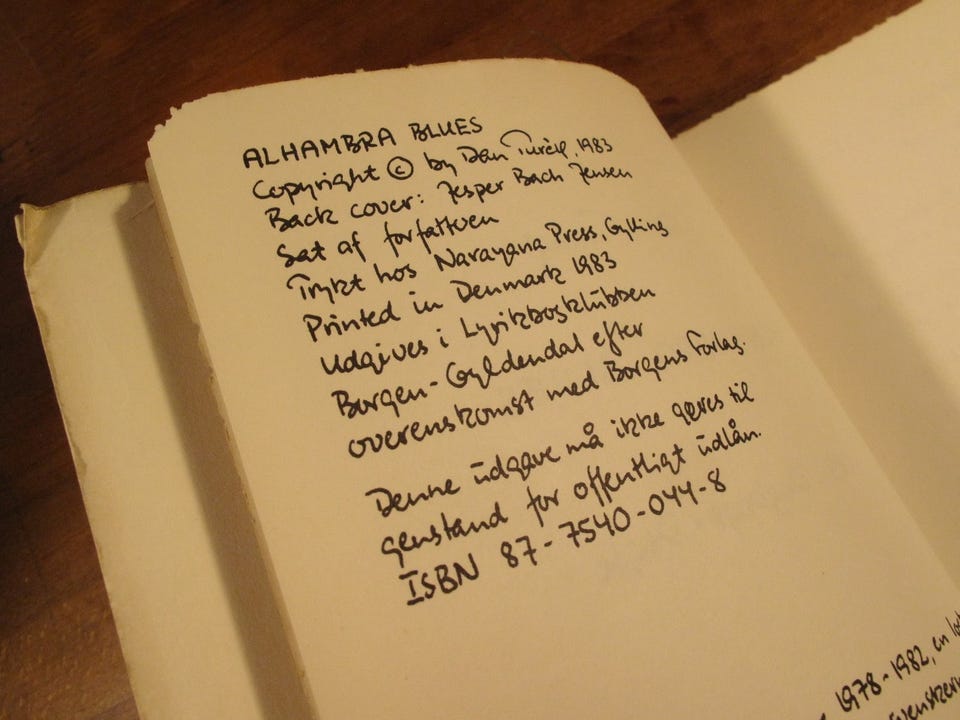 ALHAMBRA BLUES
Copyright © by Dan Turèll, 1983
Back cover: Jesper Bach Jensen
Sat af forfatteren
Trykt hos Narayana Press, Gylling
Printed in Denmark 1983
Udgives i Lyrikbogklubben
Borgen-Gyldendal efter
overenskomst med Borgens Forlag.
Denne udgave må ikke gøres til
genstand for offentligt udlån.
ISBN 87-7540-044-8
1978-1982, en